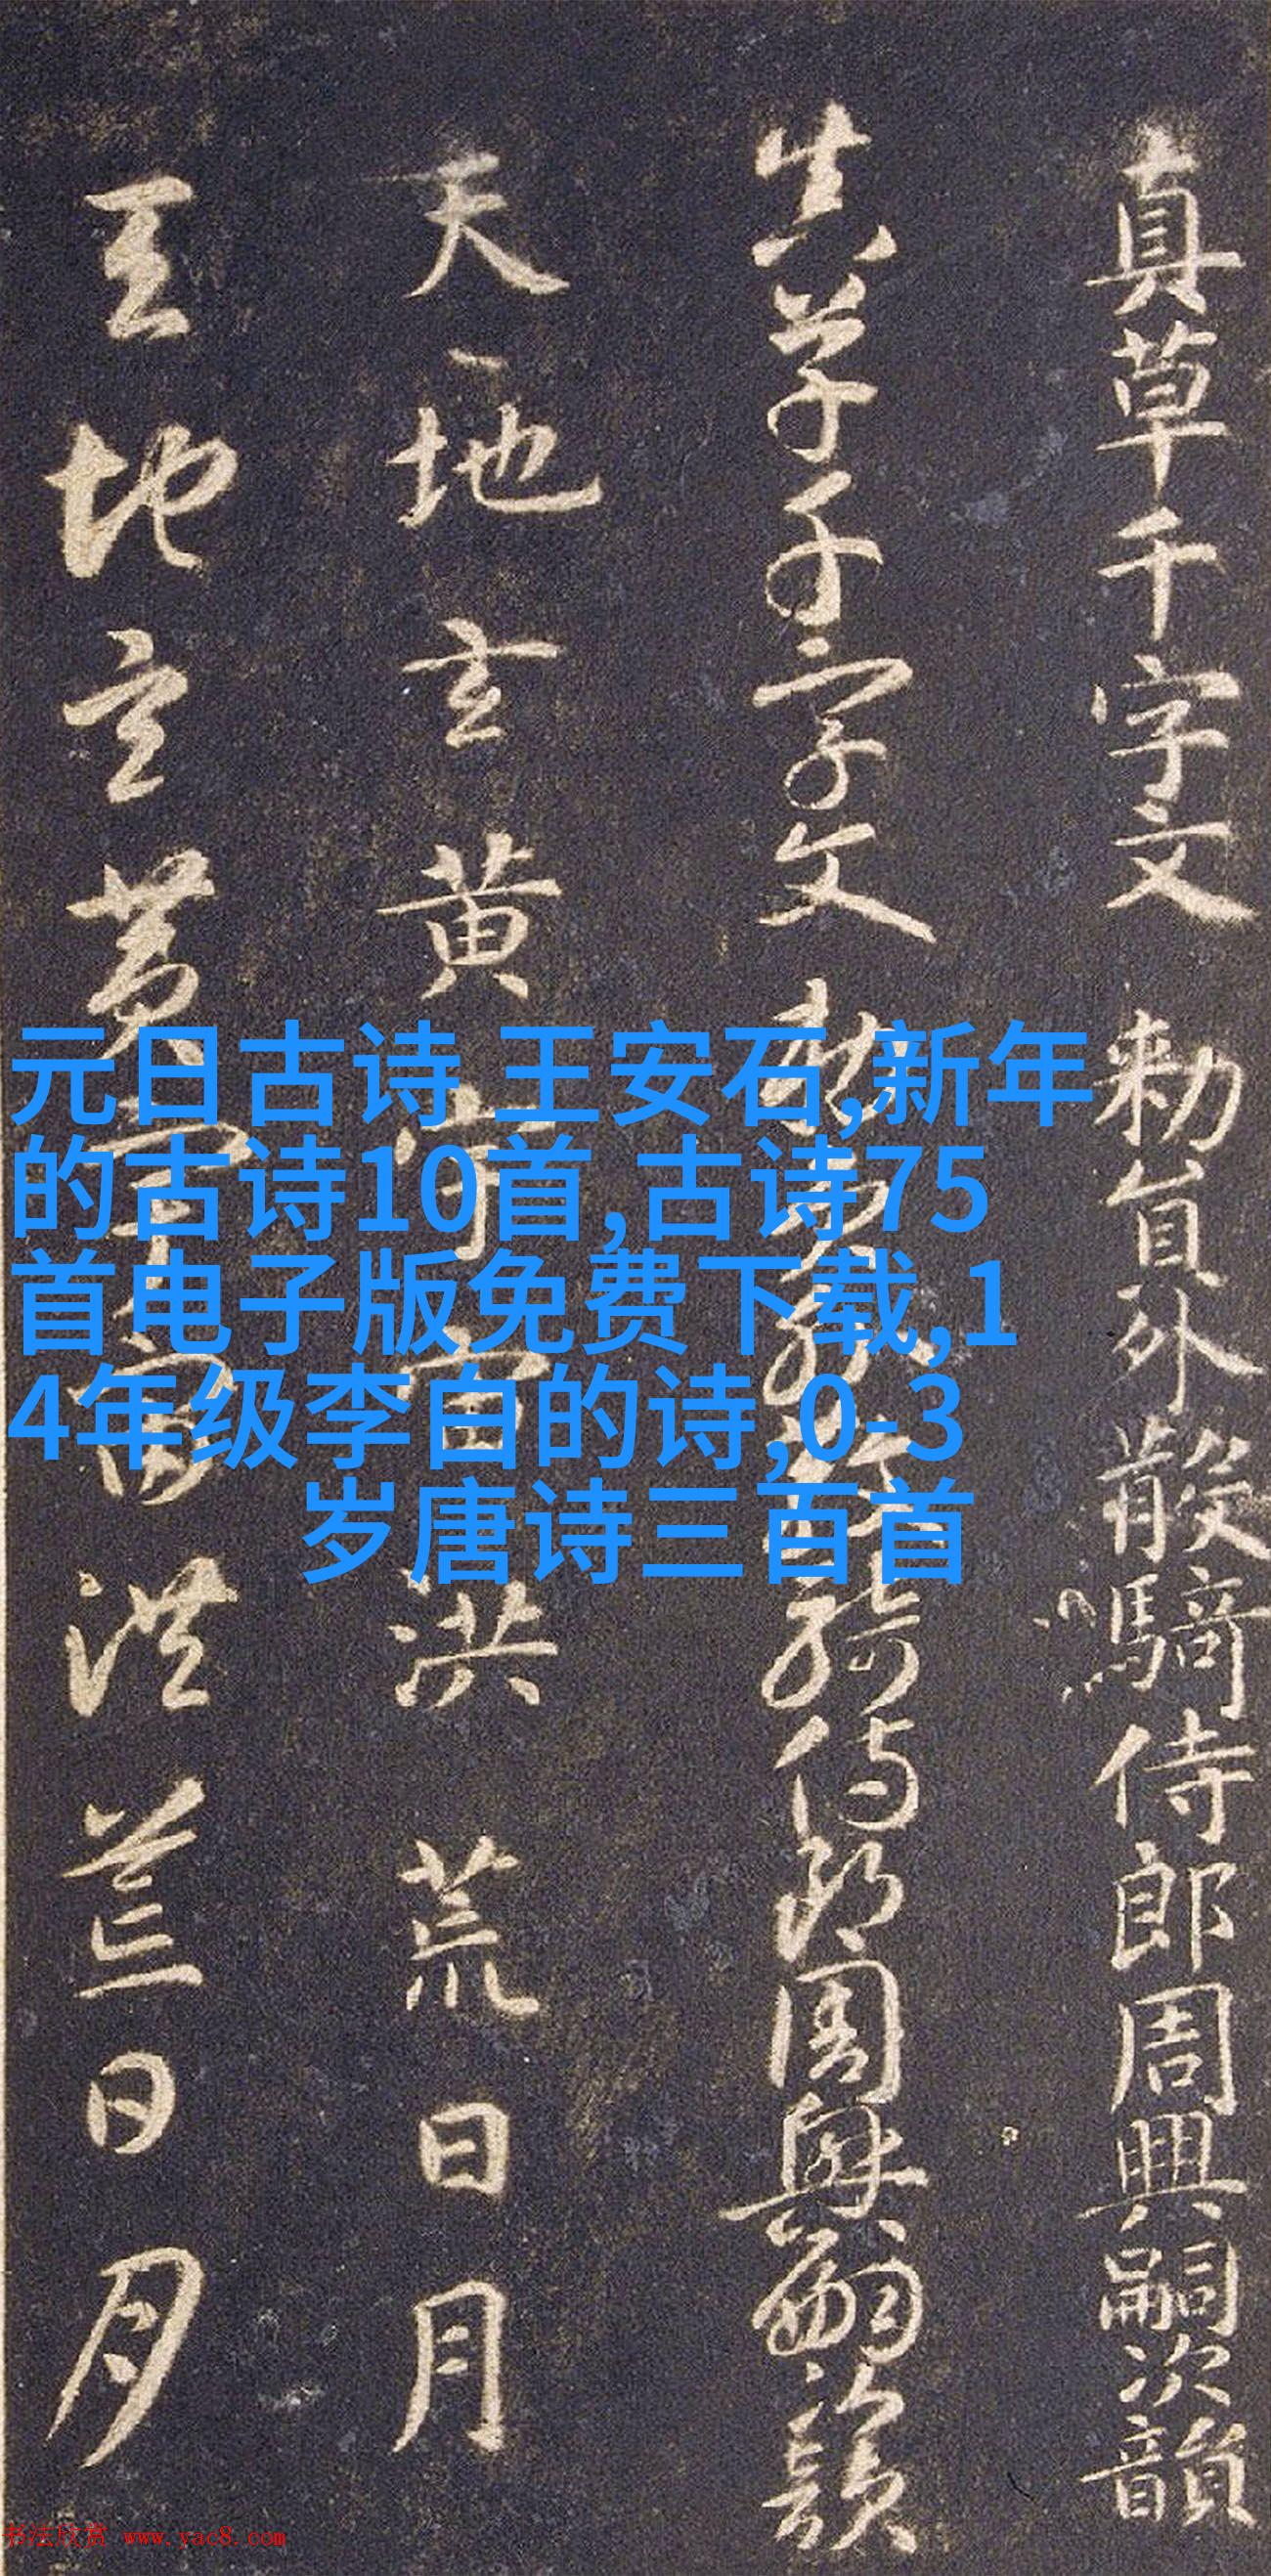 真草千字文 勑員外散騎侍郎周興嗣次韻
真草千字文 勑員外散騎侍郎周興嗣次韻
天地玄黄宇宙洪荒日月
天地玄黄宇宙洪荒日月
元日古诗 王安石,新年
的古诗10首,古诗75
首电子版免费下载,1
4年级李白的诗,0-3
岁唐诗三百首
书法欣赏 www.yac8.com